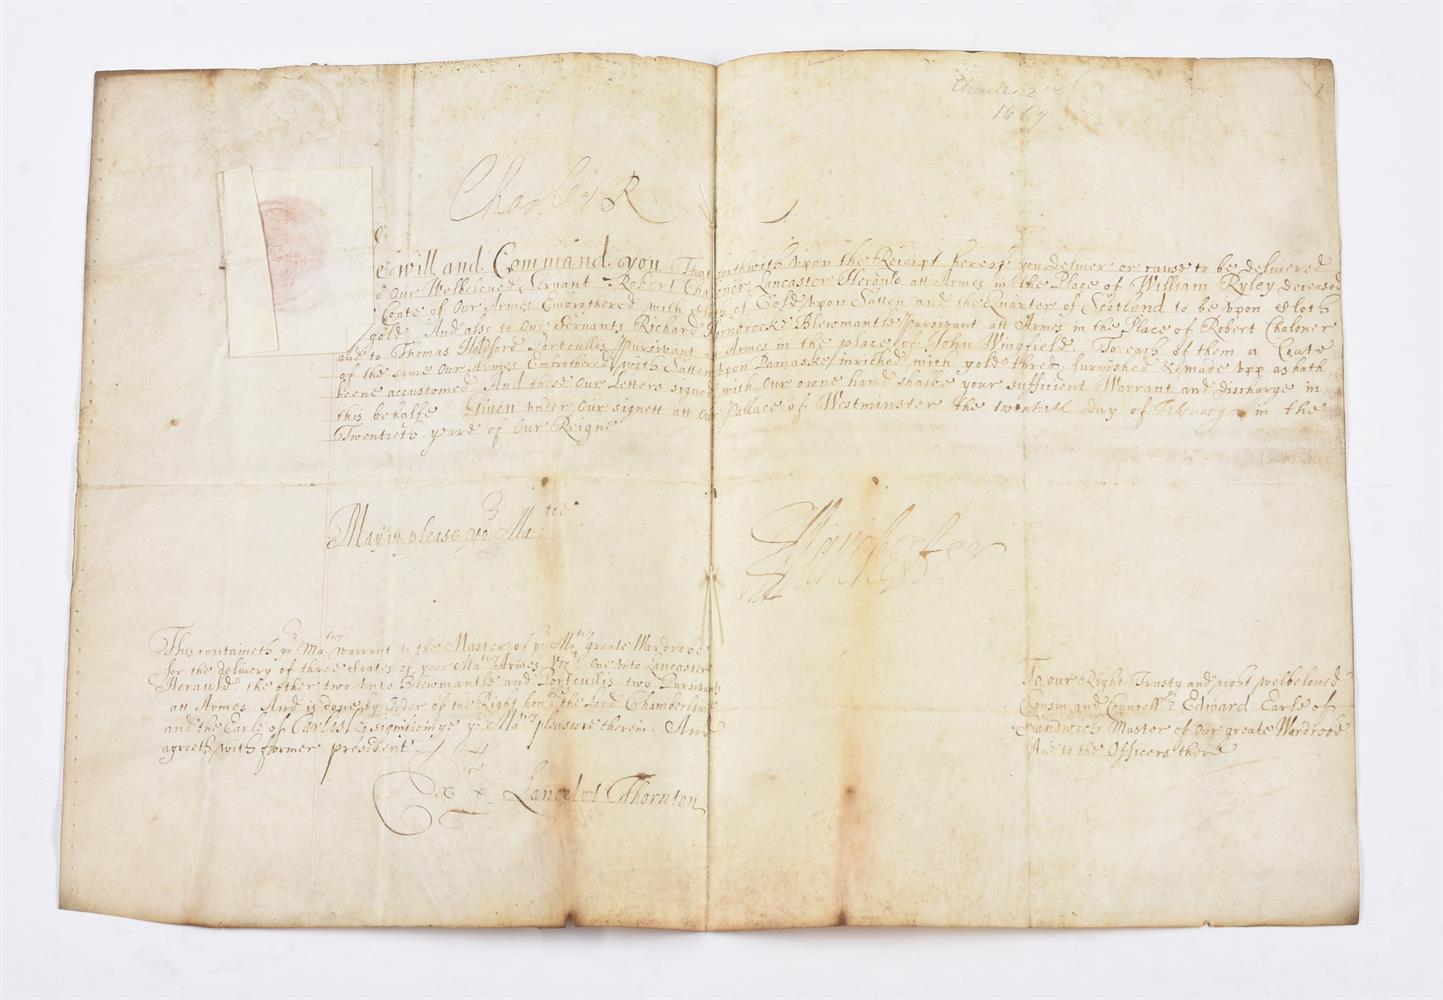 Charles 2nd
1667
Charles R
e will and Command you That forthwith vpon the Receipt hereof you deliver or cause to be delivered
o Our Welbeloved Servant Robert Chaloner Lancaster Herauld att Armes in the Place of William Ryley deceased
Coate of Our Armes Embrothered with of Gold vpon Satten and the Quarter of Scotland to be vpon Cloth
gold. And also to Our Servants Richard Hornbrooke Blewmantle Pursivant att Armes in the Place of Robert Chaloner
and to Thomas Holdford Portcullis Pursivant att Armes in the place of John Wingfield. To each of them a Coate
of the same Our Armes Embrothered with Satten vpon Damaske inriched with gold thred, furnished & made vpp as hath
beene accustomed And these Our Letters signed with Our owne hand shalbe your sufficient Warrant and discharge in
this behalfe Given vnder Our signett att Our Pallace of Westminster the twentith day of February in the
Twentieth yeare of Our Reigne
May it please yor Matie
Manchester
This containeth yor Maties warrant to the Master of yor Maties greate Wardrobe
for the delivery of three Coates of your Maties Armes Vizt One vnto Lancaster
Herauld the other two vnto Blewmantle and Portcullis two Pursivants
att Armes. And is done by Order of the Right honoble the Lord Chamberlaine
and the Earle of Carlisle signifieinge yor Maties pleasure therein. And
agreeth with former president
Ex p Lancelot Thornton
To our Right Trusty and right welbeloved
Cousin and Councellr Edward Earle of
Sandwich Master of Our greate Wardrobe
And to the Officers there